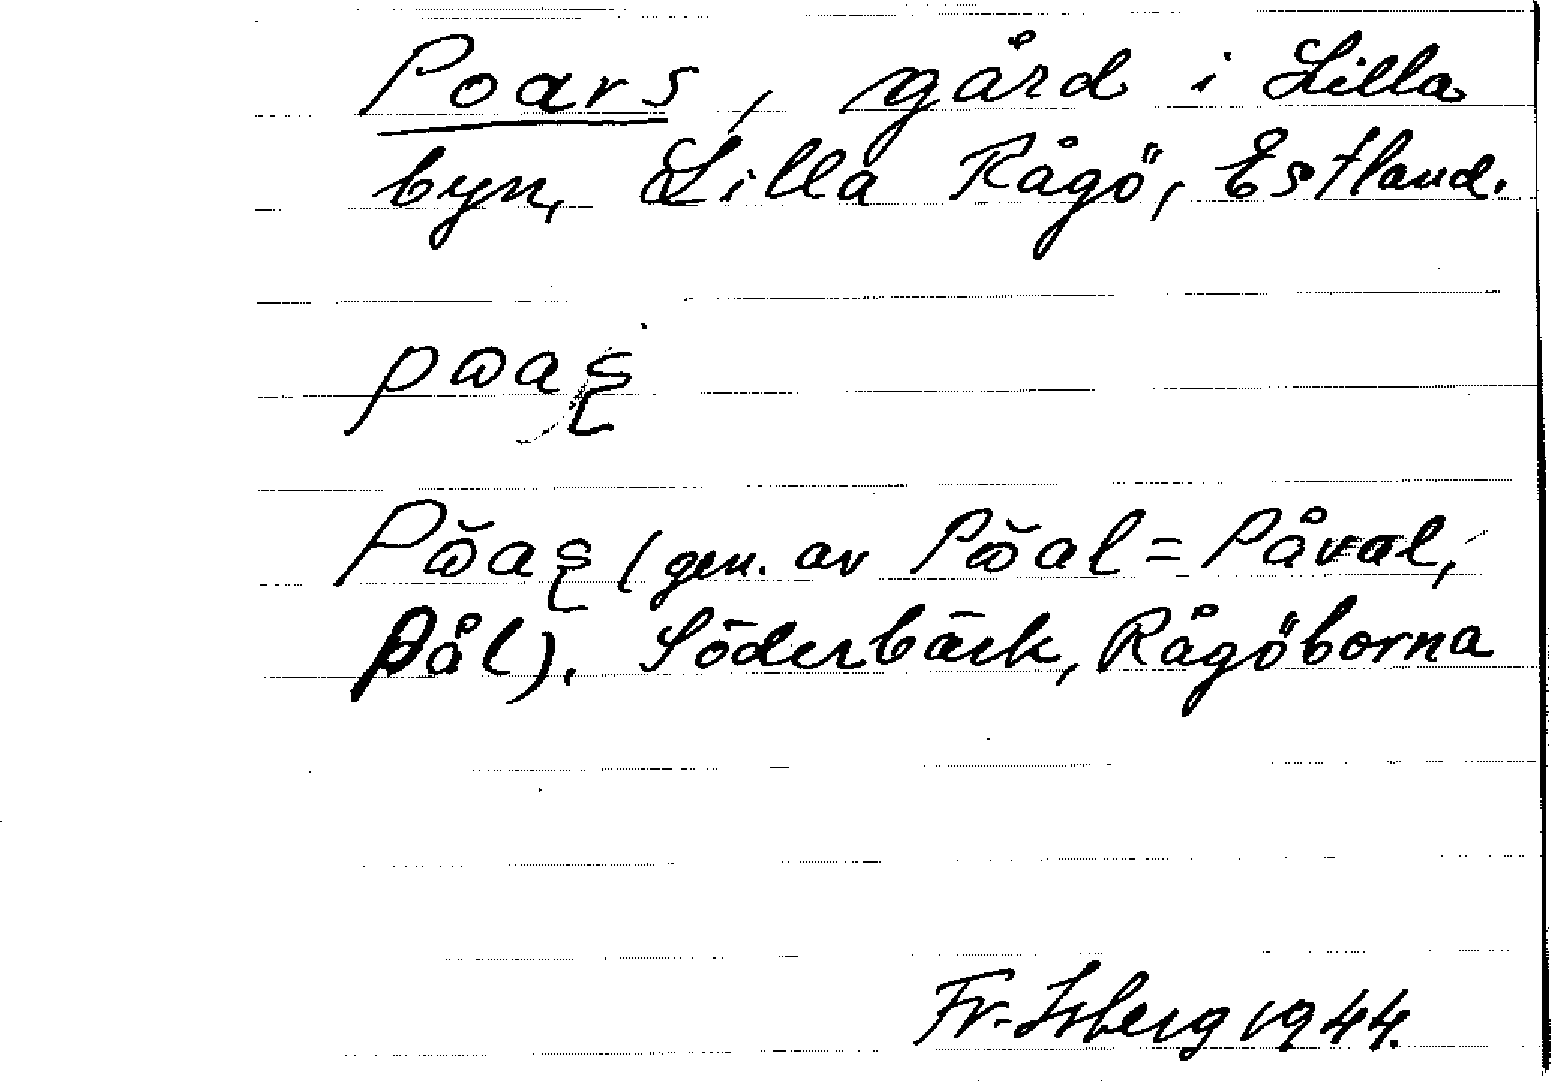 Poars, gård i Lilla
byn, Lilla Rågö, Estland.
pωaʂ
Pω̆aʂ (gen. av Pω̆al = Påval,
Pål). Söderbäck, Rågöborna
Fr. Isberg 1944.